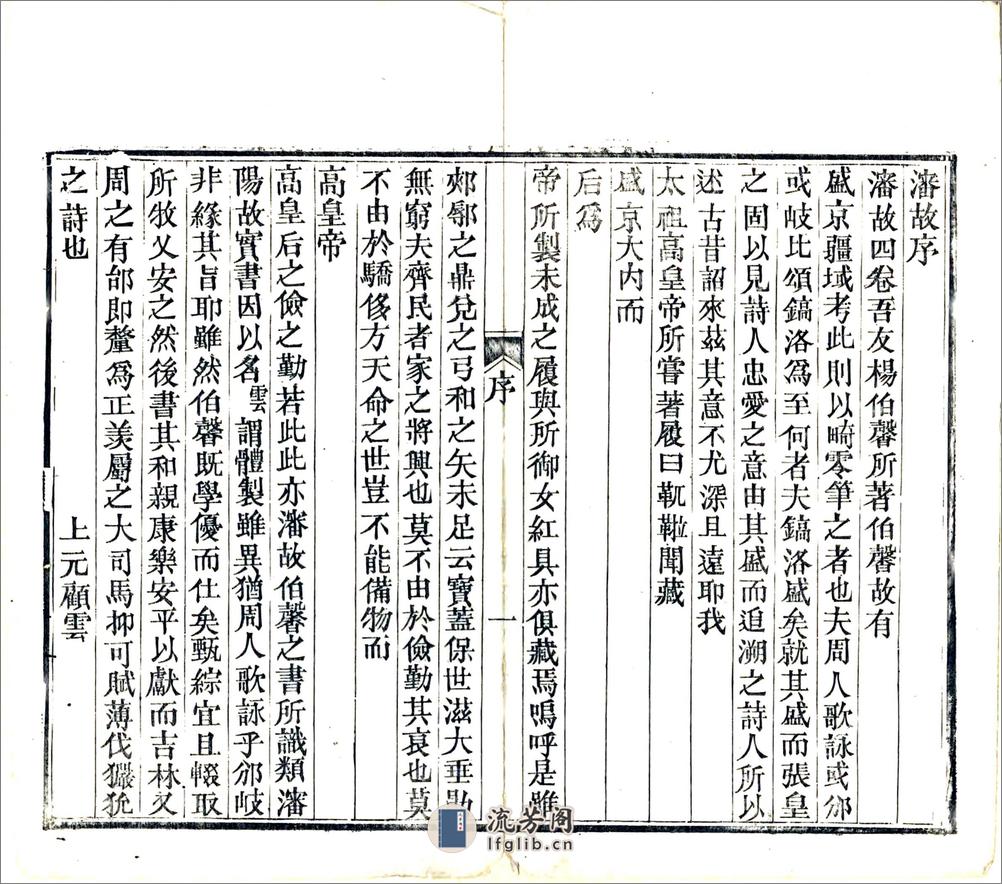 瀋故序
瀋故四卷吾友楊伯馨所著伯馨故有
盛京疆域考此則以畸零筆之者也夫周人歌詠或邠
或岐比頌鎬洛為至何者夫鎬洛盛矣就其盛而張皇
之固以見詩人忠愛之意由其盛而追溯之詩人所以
述古昔詔來茲其意不尤深且遠耶我
太祖高皇帝所嘗著履曰靰鞡聞藏
盛京大內而
后為
帝所製未成之履與所御女紅具亦俱藏焉嗚呼是雖
序
一
郟鄏之鼎兌之弓和之矢未足云寶蓋保世滋大垂勛
無窮夫齊民者家之將興也莫不由於儉勤其衰也莫
不由於驕侈方天命之世豈不能備物而
高皇帝
高皇后之儉之勤若此此亦瀋故伯馨之書所識類瀋
陽故實書因以名雲謂體製雖異猶周人歌詠乎邠岐
非緣其旨耶雖然伯馨既學優而仕矣甄綜宜且輟取
所牧乂安之然後書其和親康樂安平以獻而吉林又
周之有邰即釐為正羨屬之大司馬抑可賦薄伐玁狁
之詩也
上元顧雲
流芳阁
lfglib.cn